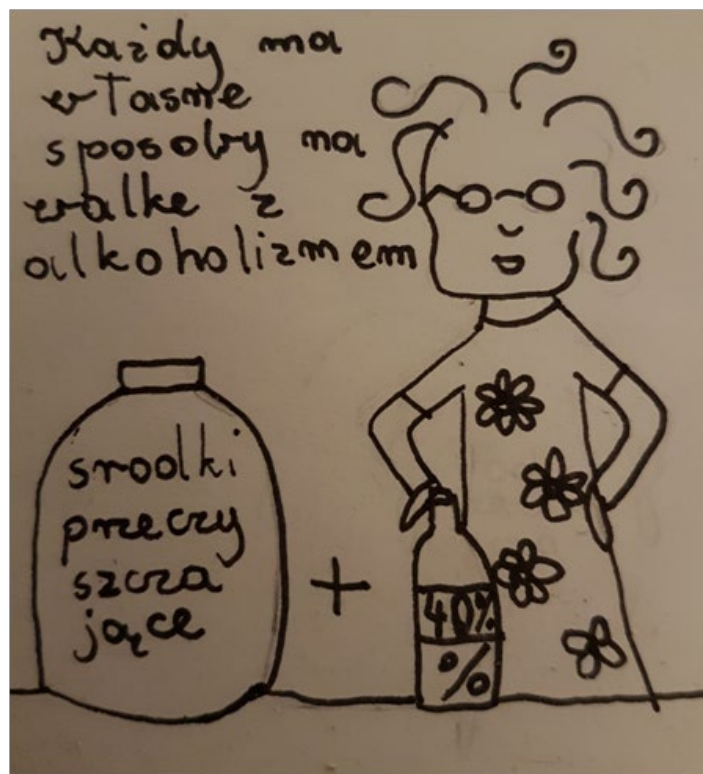 Każdy ma
własne
sposoby na
walkę z
alkoholizmem
srodki
przeczy
szcza
jące
+
40%
%